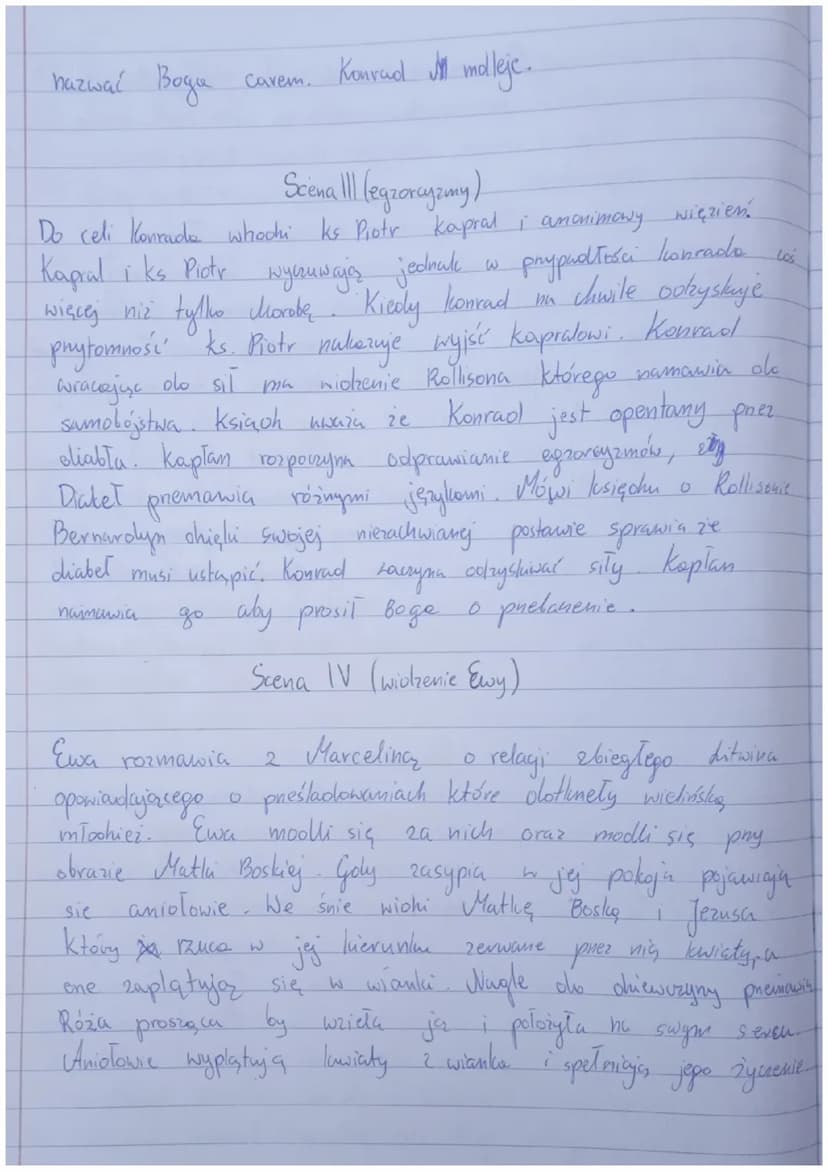 nazwać Boga carem. Konrad mdleje.
Scena III (egzorcyzmy)
Do celi Konrada whodzi ks Piotr kapral i anonimowy więzień.
Kapral i ks Piotr wyczuwają jednak w przypadłości konrada coś
więcej niż tylko chorobę. Kiedy konrad na chwile odzyskuje
przytomność ks. Piotr nakazuje wyjść kapralowi. Konrad
wracając do sił ma widzenie Rollisona którego namawia do
samobójstwa. Ksiądz uważa że Konrad jest opentany przez
diabła. Kapłan rozpoczyna odprawianie egzorcyzmów,
Diabeł przemawia różnymi językami. Mówi księdzu o Rollisonie
Bernardyn dzięki swojej niezachwianej postawie sprawia że
diabeł musi ustąpić. Konrad zaczyna odzyskiwać siły. Kapłan
namawia go aby prosił Boga o przebaczenie.
Scena IV (widzenie Ewy)
Ewa rozmawia z Marceliną o relacji zbiegłego Litwina
opowiadającego o prześladowaniach które dotknęły wileńską
młodzież. Ewa modli się za nich oraz modli się przy
obrazie Matki Boskiej. Gdy zasypia w jej pokoju pojawiają
się aniołowie. We śnie widzi Matkę Boską i Jezusa
który rzuca w jej kierunku zerwane przez nią kwiaty, a
one zaplątują się w wianki. Nagle do dziewczyny przemawia
Róża prosząca by wzięła ją i położyła na swym sercu
Aniołowie wyplątują kwiaty z wianka i spełniają jego życzenie.